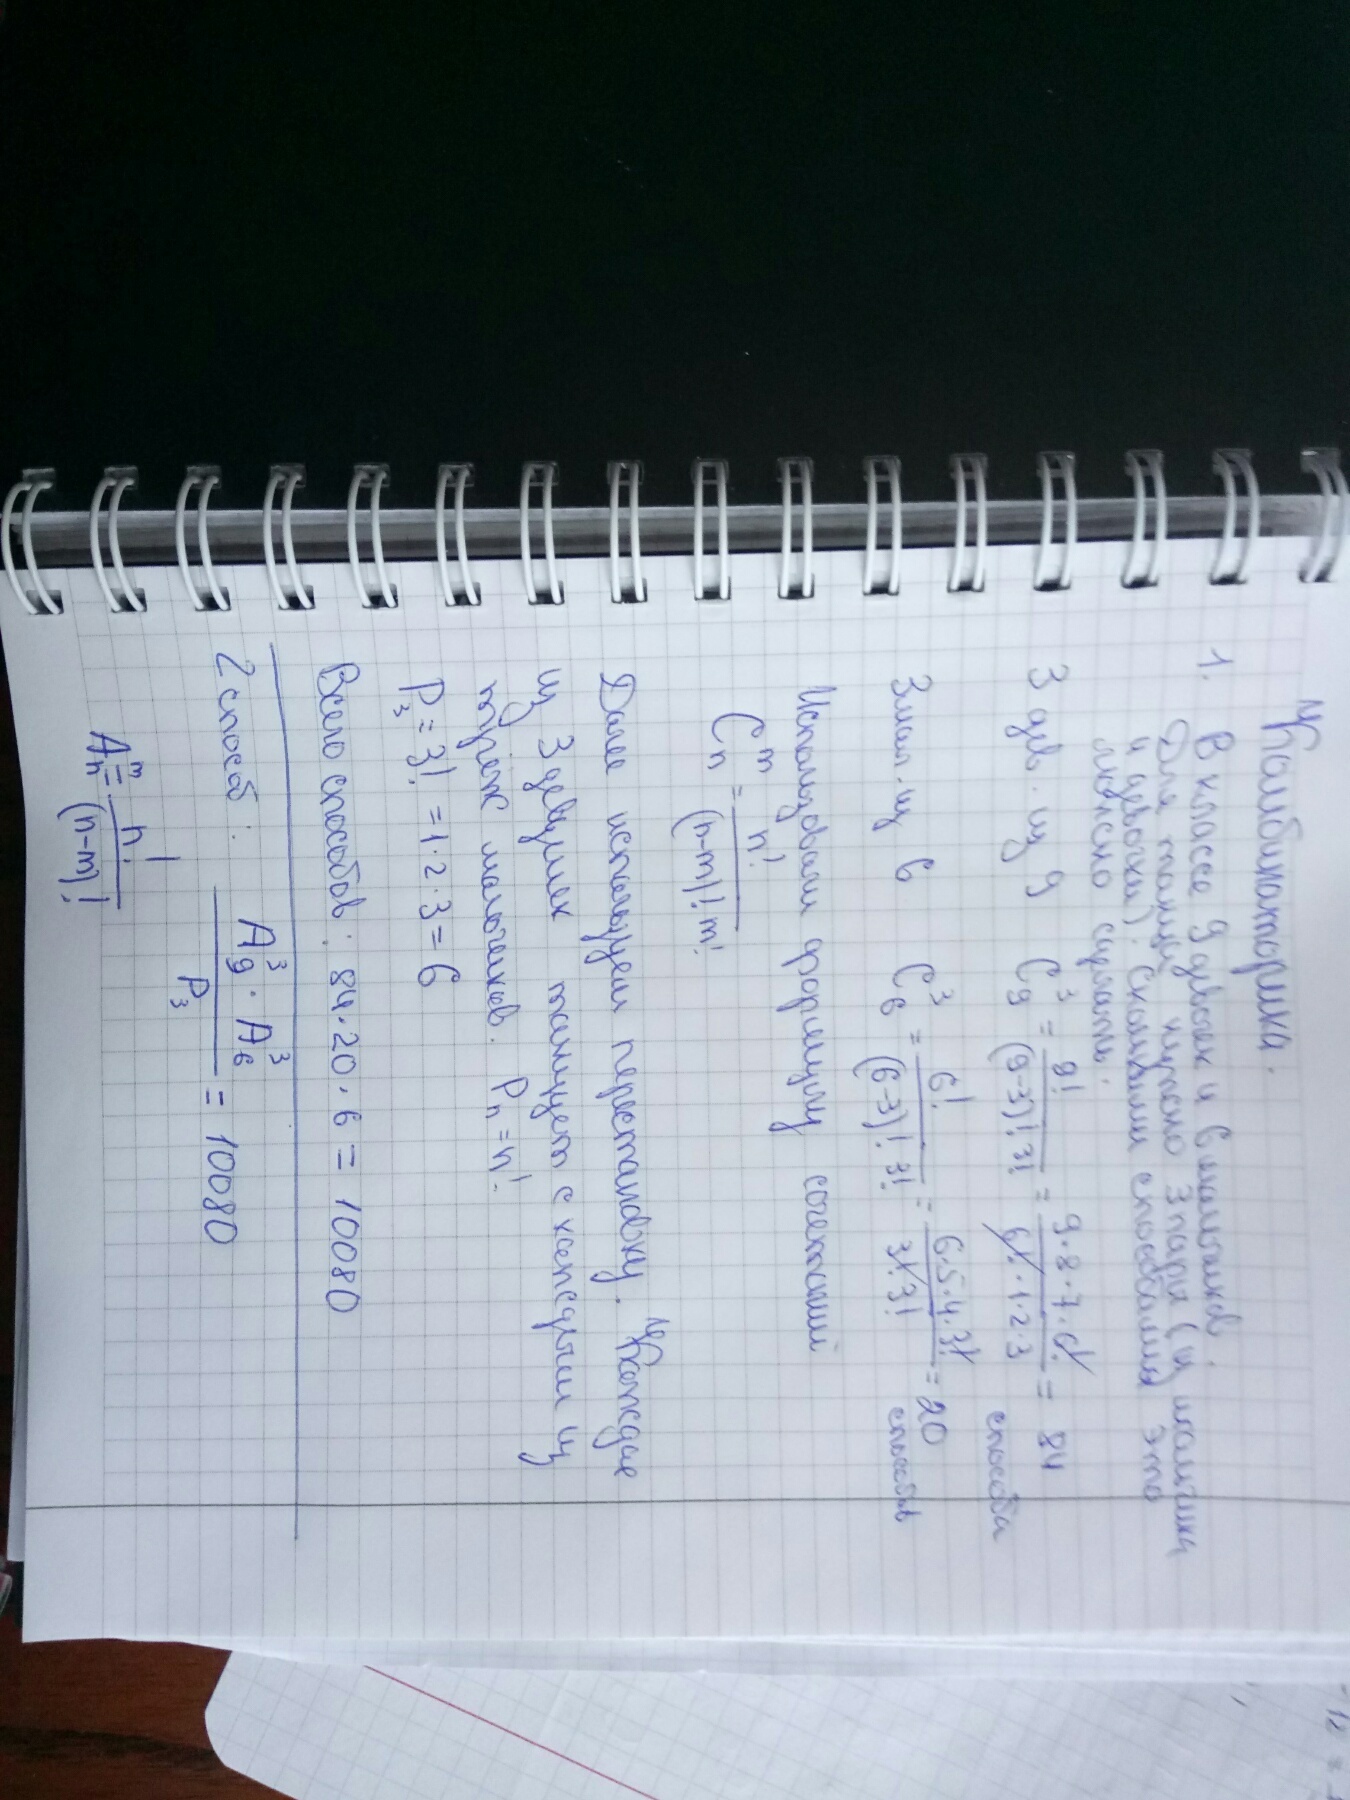 Комбинаторика.
1. В классе 9 девочек и 6 мальчиков.
Для танца нужно 3 пары (и мальчика
и девочки). Сколькими способами это
можно сделать.
3 дев. из 9 C₉³ = 9! / (9-3)! 3! = 9·8·7·6! / 6!·1·2·3 = 84
способа
3 мал. из 6 C₆³ = 6! / (6-3)! 3! = 6·5·4·3! / 3!·3! = 20
способов
Использовали формулу сочетаний
Cₙᵐ = n! / (n-m)! m!
Далее используем перестановку. Каждые
из 3 девушек танцует с каждым из
троек мальчиков. Pₙ = n!
P₃ = 3! = 1·2·3 = 6
Всего способов: 84·20·6 = 10080
2 способ: A₉³ · A₆³ / P₃ = 10080
Aₙᵐ = n! / (n-m)!